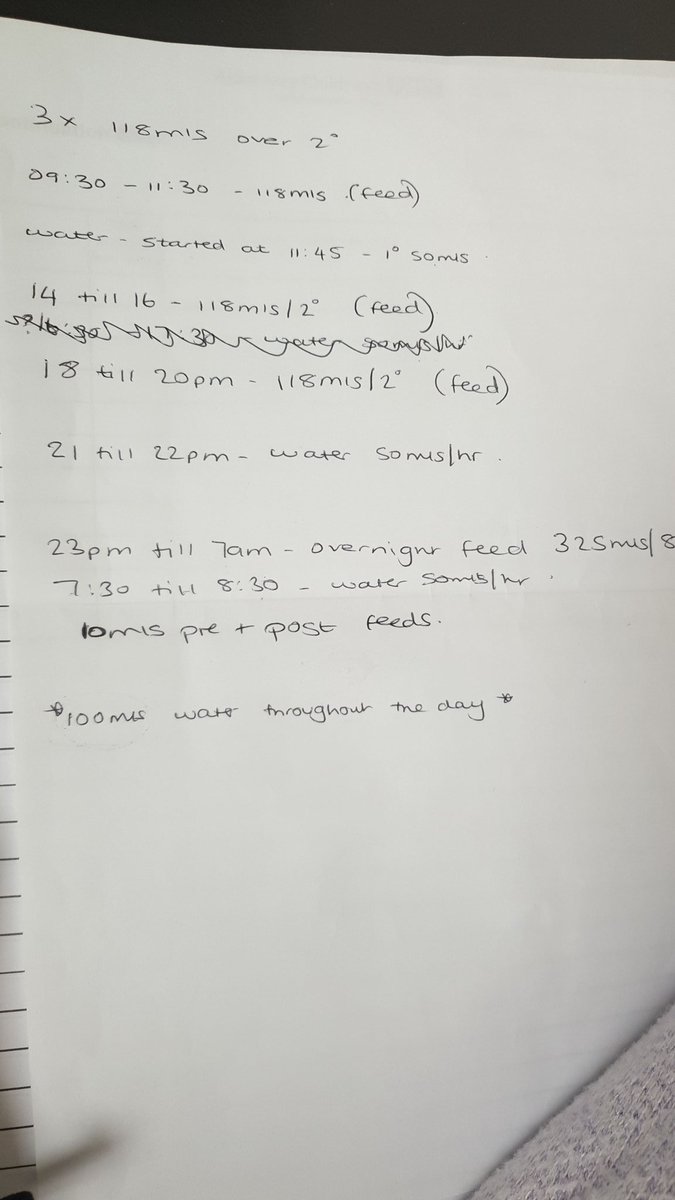 3x 118mls over 2°
09:30 - 11:30 - 118mls (feed)
water - started at 11:45 - 1° 50mls
14 till 16 - 118mls/2° (feed)
18 till 20pm - 118mls/2° (feed)
21 till 22pm - water 50mls/hr.
23pm till 7am - overnight feed 325mls/8
7:30 till 8:30 - water 50mls/hr.
10mls pre + post feeds.
*100mls water throughout the day*